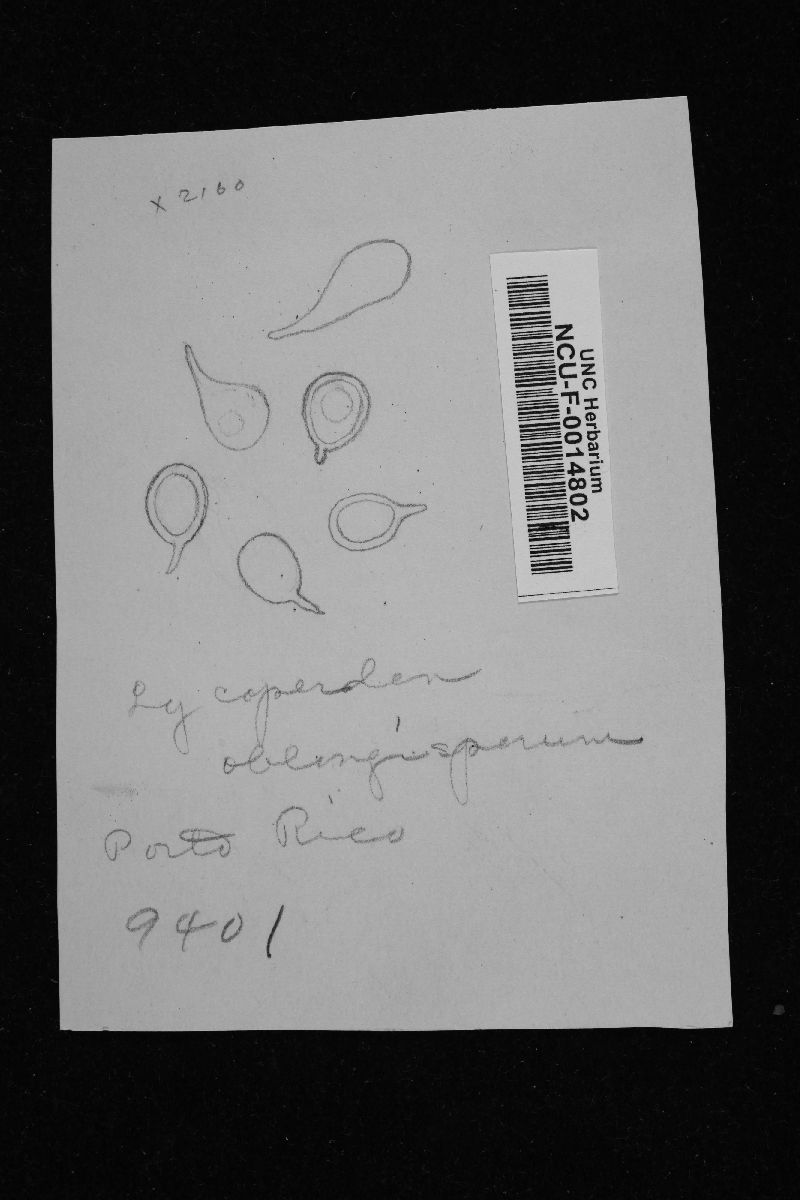 x 2160
UNC Herbarium
NCU-F-0014802
Lycoperden
oblongisperum
Porto Rico
9401